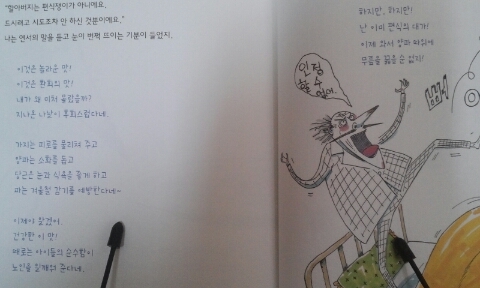 "할아버지는 편식쟁이가 아니에요.
드시려고 시도조차 안 하신 것뿐이에요."
나는 연서의 말을 듣고 눈이 번쩍 뜨이는 기분이 들었지.
이것은 놀라운 맛!
이것은 환희의 맛!
내가 왜 미처 몰랐을까?
지나온 나날이 후회스럽다네.
가지는 피로를 풀리게 주고
양파는 소화를 돕고
당근은 눈과 식욕을 좋게 하고
파는 겨울철 감기를 예방한다네~
이제야 알겠어.
건강한 이 맛!
때로는 아이들의 순수함이
노인을 일깨워 준다네.
하지만, 하지만!
난 이미 편식의 대가!
이제 와서 양파 따위에
무릎을 꿇을 순 없지!
인정
할 수
없어.